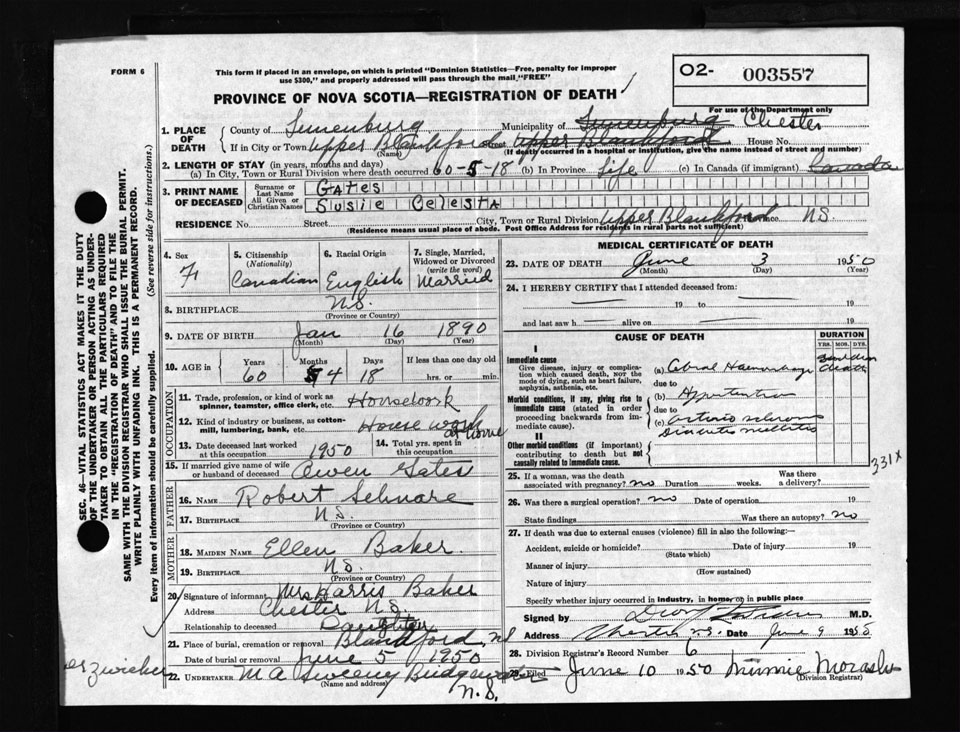 FORM 6
This form if placed in an envelope, on which is printed "Dominion Statistics—Free, penalty for improper
use $300," and properly addressed will pass through the mail "FREE"
O2- 003557
For use of the Department only
PROVINCE OF NOVA SCOTIA—REGISTRATION OF DEATH
1. PLACE OF DEATH
County of Lunenburg Municipality of Lunenburg Chester
If in City or Town Upper Blandford Street Upper Blandford House No.
(Name) (If death occurred in a hospital or institution, give the name instead of street and number)
2. LENGTH OF STAY (in years, months and days)
(a) In City, Town or Rural Division where death occurred 60-5-18 (b) In Province Life (c) In Canada (if immigrant) Canada
3. PRINT NAME OF DECEASED
Surname or Last Name Gates
All Given or Christian Names Susie Celesta
RESIDENCE No. Street City, Town or Rural Division Upper Blandford N.S.
(Residence means usual place of abode. Post Office Address for residents in rural parts not sufficient)
4. Sex F
5. Citizenship (Nationality) Canadian
6. Racial Origin English
7. Single, Married, Widowed or Divorced (write the word) Married
8. BIRTHPLACE N.S.
(Province or Country)
9. DATE OF BIRTH Jan 16 1890
(Month) (Day) (Year)
10. AGE in Years Months Days If less than one day old
60 5 4 18 hrs. or min.
OCCUPATION
11. Trade, profession, or kind of work as spinner, teamster, office clerk, etc. Housework
12. Kind of industry or business, as cotton-mill, lumbering, bank, etc. House work at Home
13. Date deceased last worked at this occupation 1950
14. Total yrs. spent in this occupation
15. If married give name of wife or husband of deceased Owen Gates
FATHER
16. NAME Robert Schnare
17. BIRTHPLACE N.S.
(Province or Country)
MOTHER
18. MAIDEN NAME Ellen Baker.
19. BIRTHPLACE N.S.
(Province or Country)
20. Signature of informant Mrs Harris Baker
Address Chester N.S.
Relationship to deceased Daughter
21. Place of burial, cremation or removal Blandford, N.S
Date of burial or removal June 5 1950
22. UNDERTAKER M A Sweeny Bridgewater
(Name and address) N.S.
Zwicker
MEDICAL CERTIFICATE OF DEATH
23. DATE OF DEATH June 3 1950
(Month) (Day) (Year)
24. I HEREBY CERTIFY that I attended deceased from:
19 to 19
and last saw h alive on 19
CAUSE OF DEATH
DURATION
YRS. MOS. DYS.
I
Immediate cause
Give disease, injury or complication which caused death, not the mode of dying, such as heart failure, asphyxia, asthenia, etc.
(a) Cebral Haemorrhage Sudden death
due to
Morbid conditions, if any, giving rise to immediate cause (stated in order proceeding backwards from immediate cause).
(b) Hypertension
due to
(c) Arterio sclerosis
II
Other morbid conditions (if important) contributing to death but not causally related to immediate cause.
Diabetes mellitus
331x
25. If a woman, was the death associated with pregnancy? no Duration weeks. Was there a delivery?
26. Was there a surgical operation? no Date of operation 19
State findings Was there an autopsy? no
27. If death was due to external causes (violence) fill in also the following:—
Accident, suicide or homicide? Date of injury 19
(State which)
Manner of injury
(How sustained)
Nature of injury
Specify whether injury occurred in industry, in home, or in public place
Signed by M.D.
Address Chester N.S. Date June 9 1950
28. Division Registrar's Record Number 6
29. Filed June 10 1950 Minnie Morash
(Division Registrar)
SEC. 46—VITAL STATISTICS ACT MAKES IT THE DUTY
OF THE UNDERTAKER OR PERSON ACTING AS UNDER-
TAKER TO OBTAIN ALL THE PARTICULARS REQUIRED
IN THE "REGISTRATION OF DEATH" AND TO FILE THE
SAME WITH THE DIVISION REGISTRAR WHO SHALL ISSUE THE BURIAL PERMIT.
WRITE PLAINLY WITH UNFADING INK. THIS IS A PERMANENT RECORD.
Every item of information should be carefully supplied. (See reverse side for instructions.)